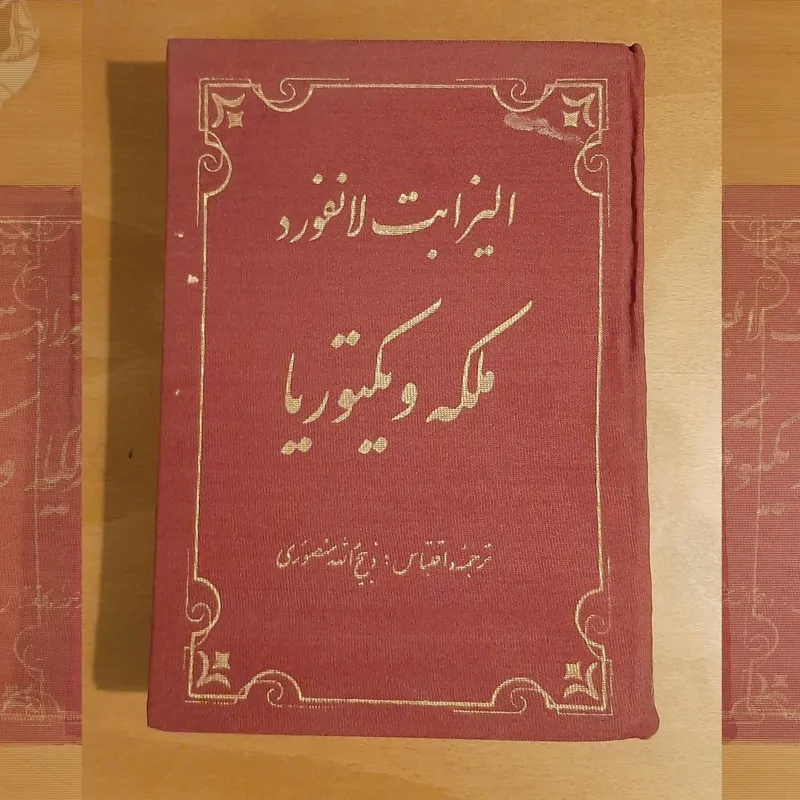 الیزابت لانفورد
ملکه ویکتوریا
ترجمه و اقتباس: ذبیح الله منصوری